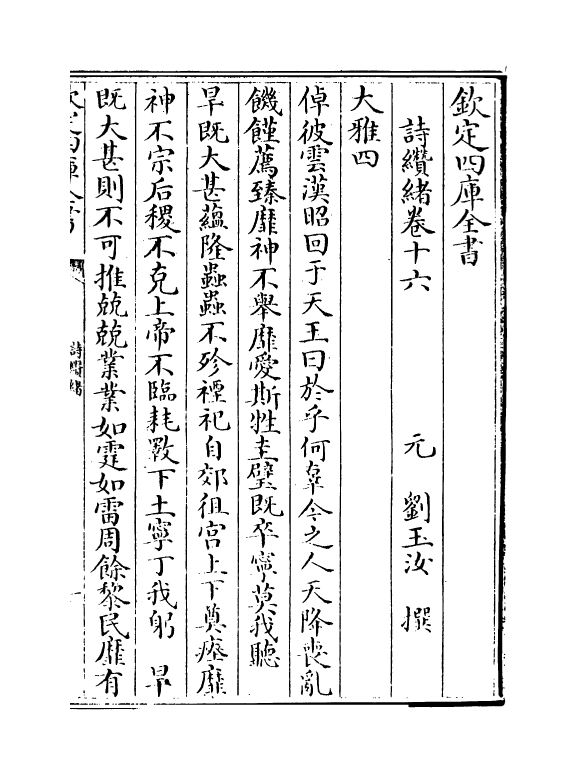 欽定四庫全書
詩纘緒卷十六　元　劉玉汝　撰
大雅四
倬彼雲漢昭回于天王曰於乎何辜今之人天降喪亂
饑饉薦臻靡神不舉靡愛斯牲圭璧既卒寧莫我聽
旱既大甚蘊隆蟲蟲不殄禋祀自郊徂宮上下奠瘞靡
神不宗后稷不克上帝不臨耗斁下土寧丁我躬　旱
既大甚則不可推兢兢業業如霆如雷周餘黎民靡有
詩纘緒